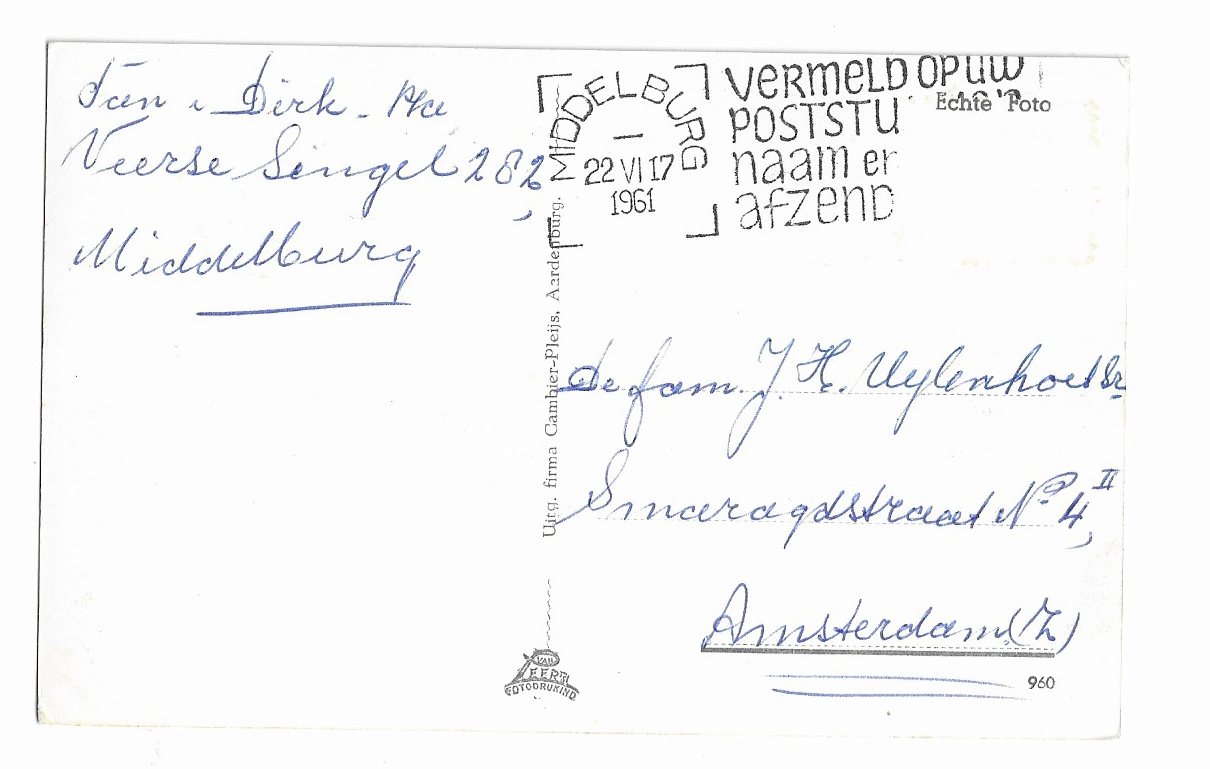 Dirk
Veerse Singel 282,
Middelburg
MIDDELBURG
22 VI 17
1961
VERMELD OP UW
POSTSTU
naam en
afzend
Echte Foto
Uitg. firma Cambier-Pleijs, Aardenburg.
De fam. J. H. Uylenhoet Sr
Smaragdstraat No 4 II,
Amsterdam (Z)
960
VAN
FOTODRUKIND